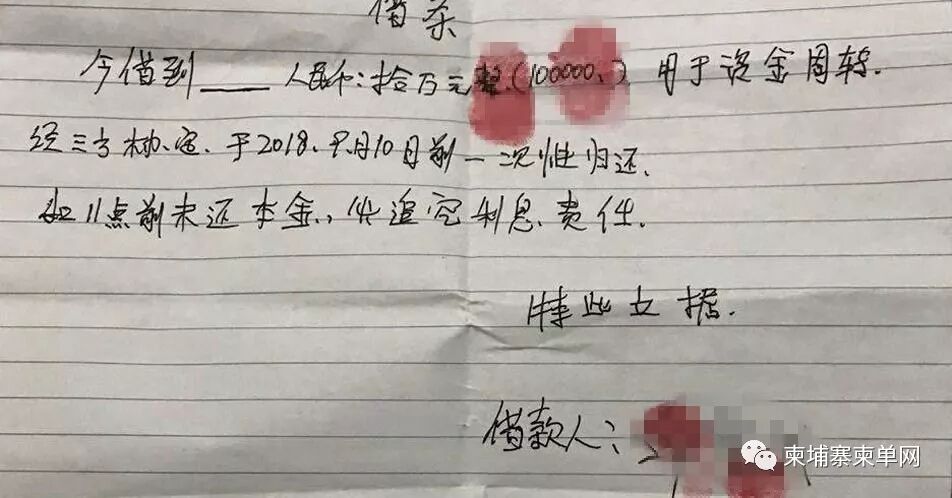 借条
今借到____人民币:拾万元整.(100000.)用于资金周转.
经三方协定.于2018.9月10日前一次性归还.
如11点前未还本金.,代追究利息.责任.
特此立据.
借款人:
柬埔寨柬单网